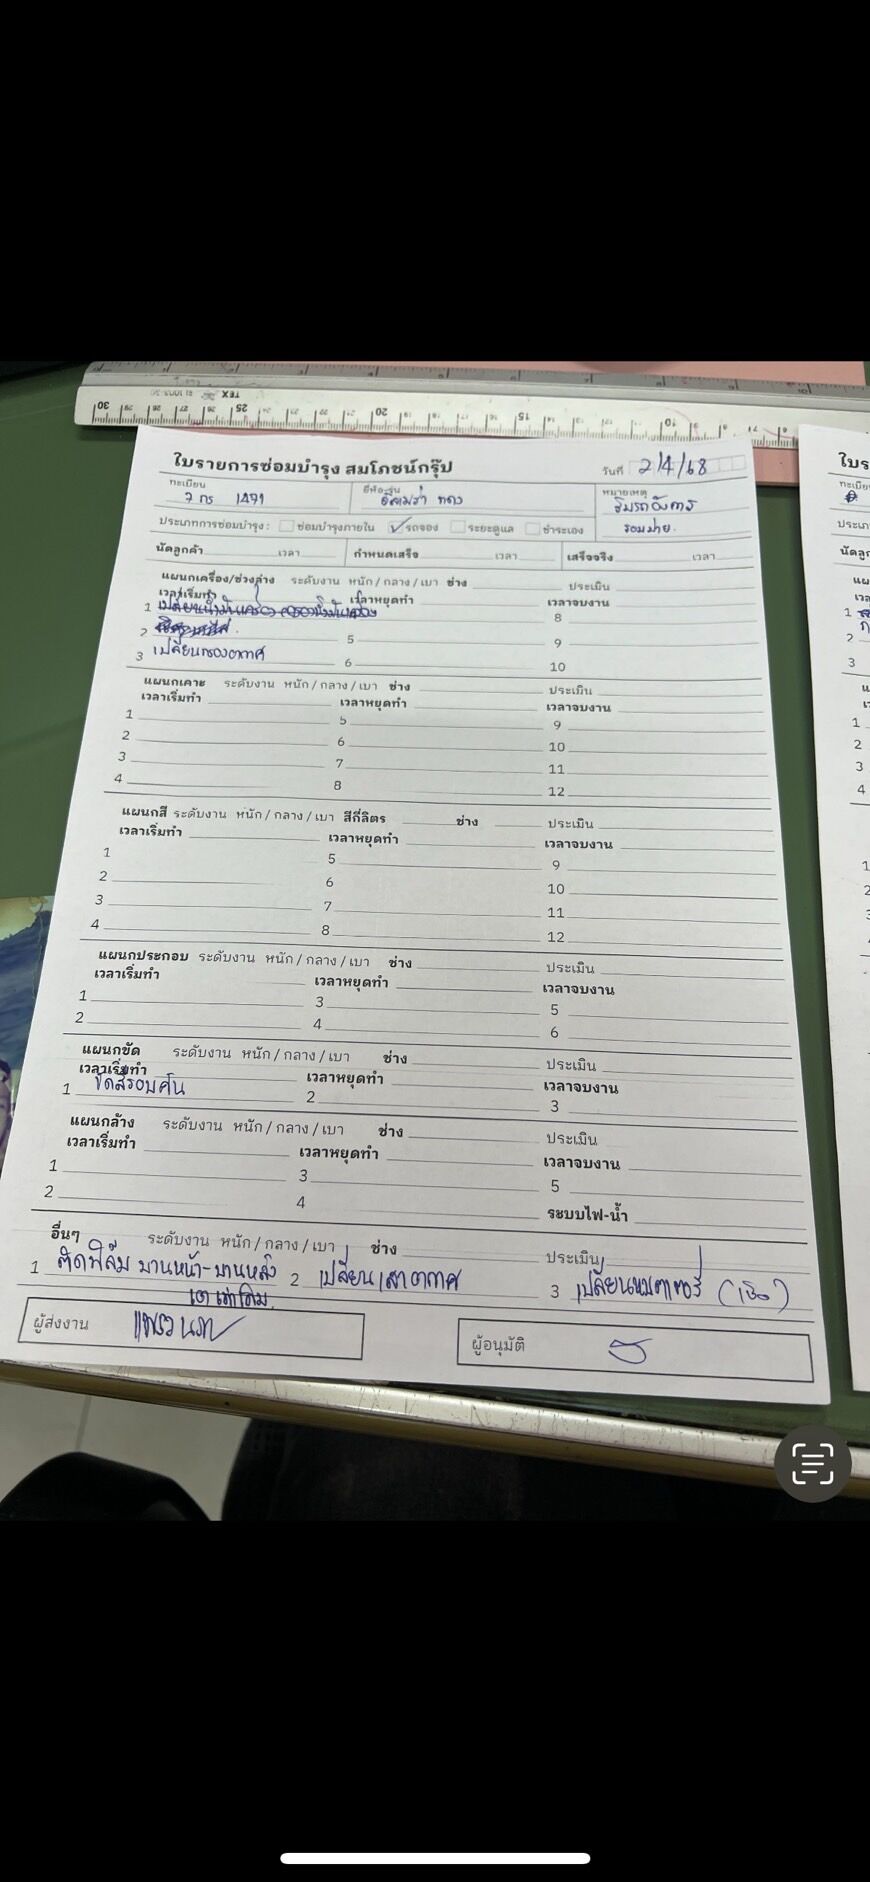 ใบรายการซ่อมบำรุง สมโภชน์กรุ๊ป วันที่ 2/4/68
ทะเบียน 7 กร 1471 ยี่ห้อ-รุ่น หมายเหตุ
ประเภทการซ่อมบำรุง : ซ่อมบำรุงภายใน รถจอง ระยะดูแล ชำระเอง
นัดลูกค้า เวลา กำหนดเสร็จ เวลา เสร็จจริง เวลา
แผนกเครื่อง/ช่วงล่าง ระดับงาน หนัก / กลาง / เบา ช่าง ประเมิน
เวลาเริ่มทำ เวลาหยุดทำ เวลาจบงาน
1 เปลี่ยนน้ำมันเครื่อง กรองน้ำมันเครื่อง 8
2 5 9
3 เปลี่ยนกรองอากาศ 6 10
แผนกเคาะ ระดับงาน หนัก / กลาง / เบา ช่าง ประเมิน
เวลาเริ่มทำ เวลาหยุดทำ เวลาจบงาน
1 5 9
2 6 10
3 7 11
4 8 12
แผนกสี ระดับงาน หนัก / กลาง / เบา สีกี่ลิตร ช่าง ประเมิน
เวลาเริ่มทำ เวลาหยุดทำ เวลาจบงาน
1 5 9
2 6 10
3 7 11
4 8 12
แผนกประกอบ ระดับงาน หนัก / กลาง / เบา ช่าง ประเมิน
เวลาเริ่มทำ เวลาหยุดทำ เวลาจบงาน
1 3 5
2 4 6
แผนกขัด ระดับงาน หนัก / กลาง / เบา ช่าง ประเมิน
เวลาเริ่มทำ เวลาหยุดทำ เวลาจบงาน
1 ขัดสีรอบคัน 2 3
แผนกล้าง ระดับงาน หนัก / กลาง / เบา ช่าง ประเมิน
เวลาเริ่มทำ เวลาหยุดทำ เวลาจบงาน
1 3 5
2 4 ระบบไฟ-น้ำ
อื่นๆ ระดับงาน หนัก / กลาง / เบา ช่าง ประเมิน
1 ติดฟิล์ม บานหน้า-บานหลัง 2 เปลี่ยนเสาอากาศ 3 เปลี่ยนแบตเตอรี่
ผู้ส่งงาน ผู้อนุมัติ